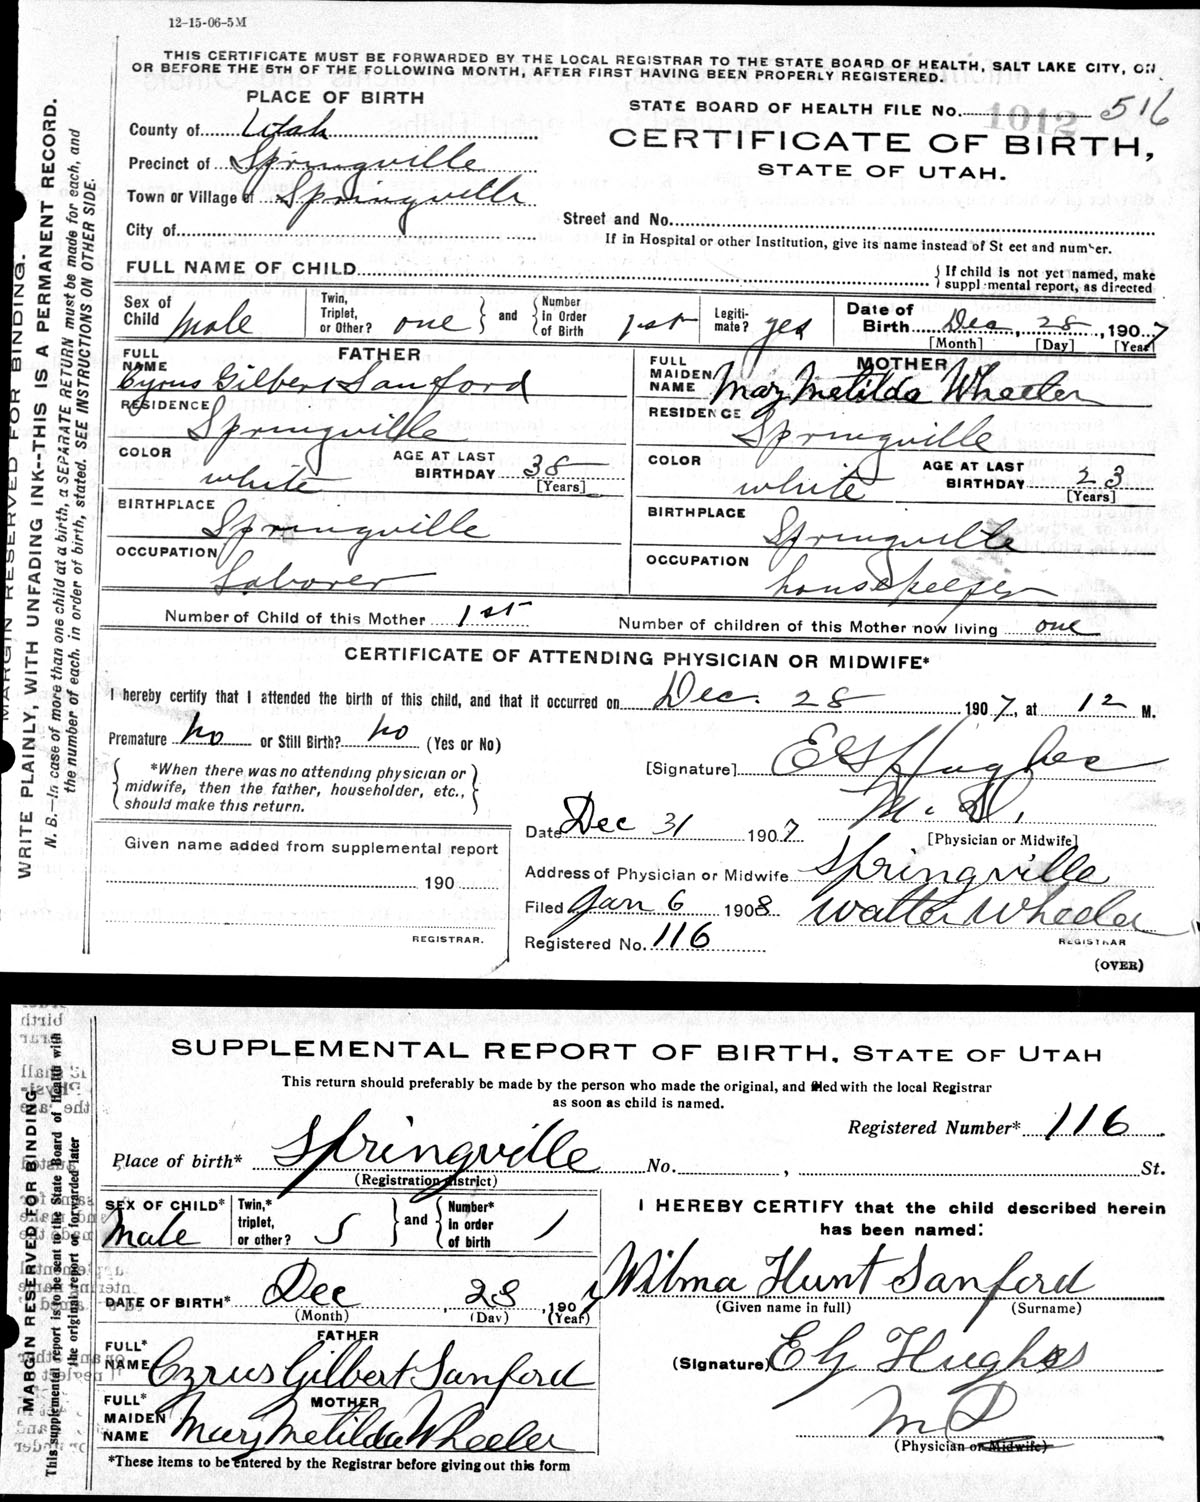 12-15-06-5M
THIS CERTIFICATE MUST BE FORWARDED BY THE LOCAL REGISTRAR TO THE STATE BOARD OF HEALTH, SALT LAKE CITY, ON
OR BEFORE THE 5TH OF THE FOLLOWING MONTH, AFTER FIRST HAVING BEEN PROPERLY REGISTERED.
MARGIN RESERVED FOR BINDING.
WRITE PLAINLY, WITH UNFADING INK--THIS IS A PERMANENT RECORD.
N. B.—In case of more than one child at a birth, a SEPARATE RETURN must be made for each, and
the number of each, in order of birth, stated. SEE INSTRUCTIONS ON OTHER SIDE.
PLACE OF BIRTH
STATE BOARD OF HEALTH FILE No. 1012 516
County of Utah
CERTIFICATE OF BIRTH,
Precinct of Springville
STATE OF UTAH.
Town or Village of Springville
Street and No.
City of
If in Hospital or other Institution, give its name instead of St eet and number.
FULL NAME OF CHILD
If child is not yet named, make
suppl-mental report, as directed
Sex of Child Male
Twin, Triplet, or Other? one and Number in Order of Birth 1st
Legiti-mate? yes
Date of Birth Dec, 28, 1907
[Month] [Day] [Year]
FATHER
FULL NAME Cyrus Gilbert Sanford
MOTHER
FULL MAIDEN NAME Mary Metilda Wheeler
RESIDENCE Springville
RESIDENCE Springville
COLOR white AGE AT LAST BIRTHDAY 38 [Years]
COLOR white AGE AT LAST BIRTHDAY 23 [Years]
BIRTHPLACE Springville
BIRTHPLACE Springville
OCCUPATION Laborer
OCCUPATION housekeeper
Number of Child of this Mother 1st
Number of children of this Mother now living one
CERTIFICATE OF ATTENDING PHYSICIAN OR MIDWIFE*
I hereby certify that I attended the birth of this child, and that it occurred on Dec. 28 1907, at 12 M.
Premature No or Still Birth? No (Yes or No)
*When there was no attending physician or
midwife, then the father, householder, etc.,
should make this return.
[Signature] E G Hughes
M. D.
[Physician or Midwife]
Date Dec 31 1907
Given name added from supplemental report
190
REGISTRAR.
Address of Physician or Midwife Springville
Filed Jan 6 1908 Walter Wheeler
REGISTRAR
Registered No. 116
(OVER)
SUPPLEMENTAL REPORT OF BIRTH, STATE OF UTAH
This return should preferably be made by the person who made the original, and filed with the local Registrar
as soon as child is named.
MARGIN RESERVED FOR BINDING.
This supplemental report is to be sent to the State Board of Health with
the original report or forwarded later
Registered Number* 116
Place of birth* Springville No. , St.
(Registration district)
SEX OF CHILD* Male
Twin,* triplet, or other? S and Number* in order of birth 1
I HEREBY CERTIFY that the child described herein
has been named:
Wilma Hunt Sanford
(Given name in full) (Surname)
DATE OF BIRTH* Dec, 28, 1907
(Month) (Day) (Year)
FATHER
FULL* NAME Cyrus Gilbert Sanford
(Signature) E G Hughes
MOTHER
FULL* MAIDEN NAME Mary Metilda Wheeler
M D
(Physician or Midwife)
*These items to be entered by the Registrar before giving out this form